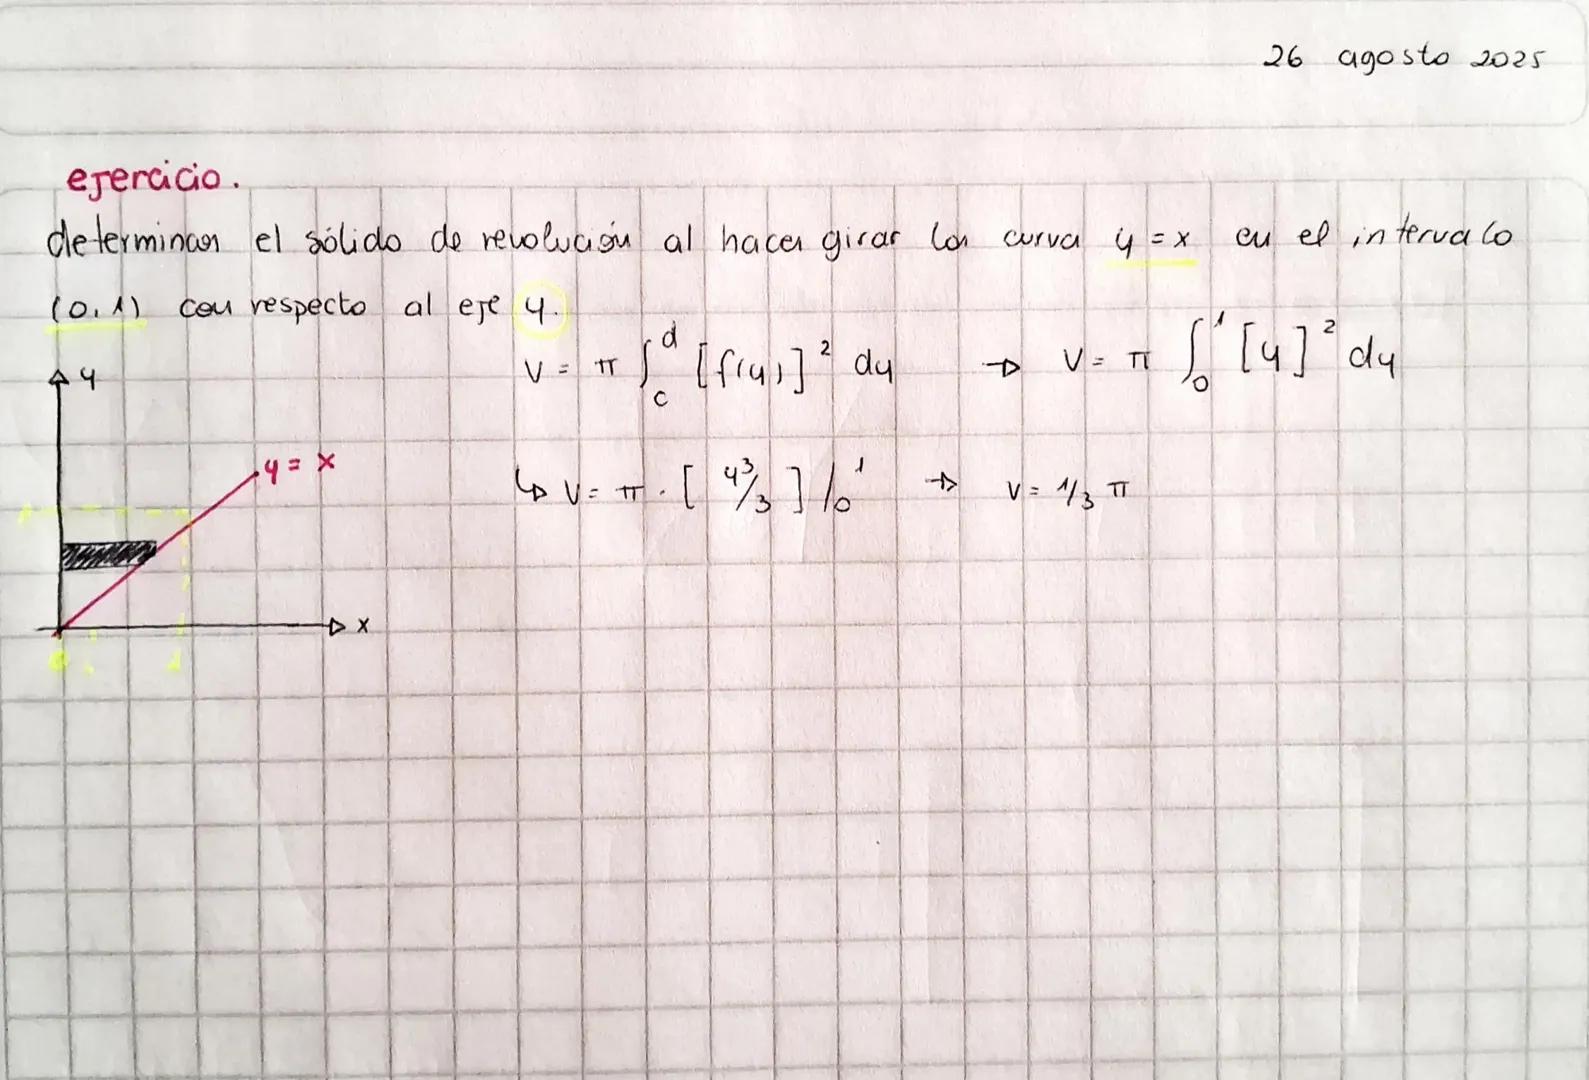 26 agosto 2025
ejercicio.
determinar el sólido de revolución al hacer girar la curva y = x en el intervalo
(0,1) con respecto al eje y.
V = π ∫_c^d [f(y)]² dy → V = π ∫_0^1 [y]² dy
y
y = x
↳ V = π · [ y³/3 ] /_0^1 → V = 1/3 π
x
0 1